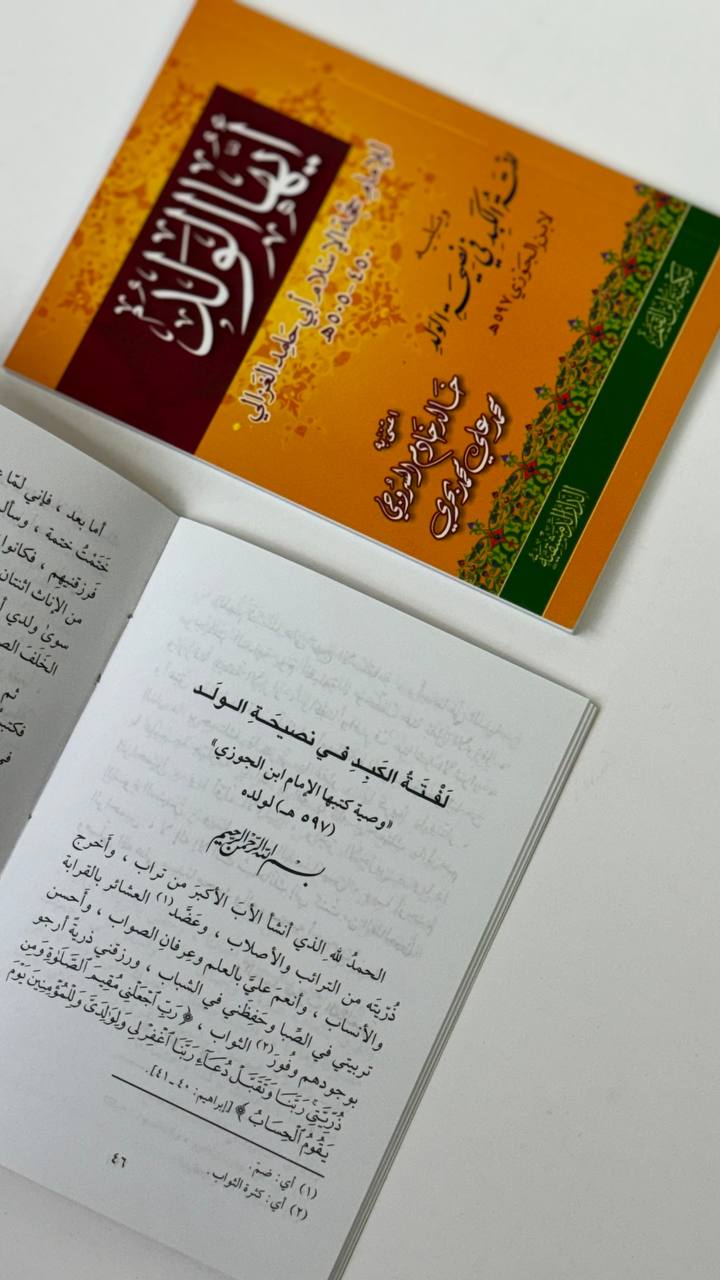 أيها الولد
للإمام حجة الإسلام أبي حامد الغزالي
٤٥٠-٥٠٥هـ
ويليه
لفتة الكبد في نصيحة الولد
لابن الجوزي ٥٩٧هـ
اعتنى به
خالد خادم السروجي
محمد علي محمد بحري
أما بعد ، فإني لمّا
خَتَمْتُ ختمة ، وسأل
فرَزقنيهم ، فكانوا
من الإناث اثنتان
سوىٰ ولدي
الخَلَفَ
ثم
فكتبتُ
في
لَفْتَةُ الكَبِدِ في نصيحَةِ الولَد
«وصية كتبها الإمام ابن الجوزي
(٥٩٧ هـ) لولده»
بسم الله الرحمن الرحيم
الحمدُ لله الذي أنشأ الأبَ الأكبرَ من تراب ، وأخرج
ذُرّيتَه من الترائب والأصلاب ، وعَضَّد(١) العشائر بالقرابة
والأنساب ، وأنعمَ عليَّ بالعلم وعِرفانِ الصواب ، وأحسن
تربيتي في الصِّبا وحَفِظَني في الشباب ، ورزقني ذريةً أرجو
بوجودهم وفُورَ(٢) الثواب ، ﴿ رَبِّ ٱجْعَلْنِى مُقِيمَ ٱلصَّلَوٰةِ وَمِن
ذُرِّيَّتِىۚ رَبَّنَا وَتَقَبَّلْ دُعَآءِ رَبَّنَا ٱغْفِرْ لِى وَلِوَٰلِدَىَّ وَلِلْمُؤْمِنِينَ يَوْمَ
يَقُومُ ٱلْحِسَابُ ﴾ [إبراهيم: ٤٠-٤١].
(١) أي: ضمّ.
(٢) أي: كثرة الثواب.
٤٦